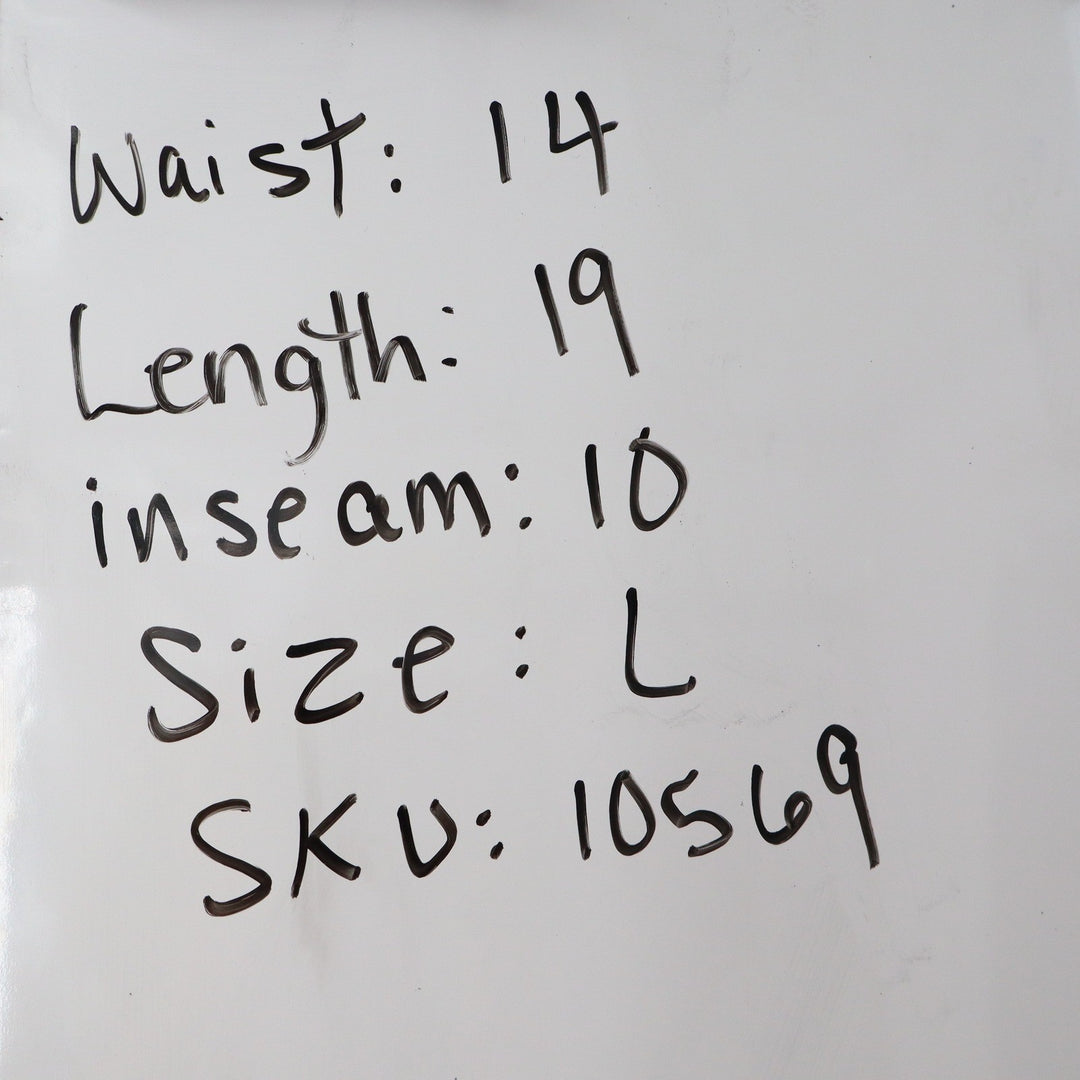 Waist: 14
Length: 19
inseam: 10
Size: L
SKU: 10569